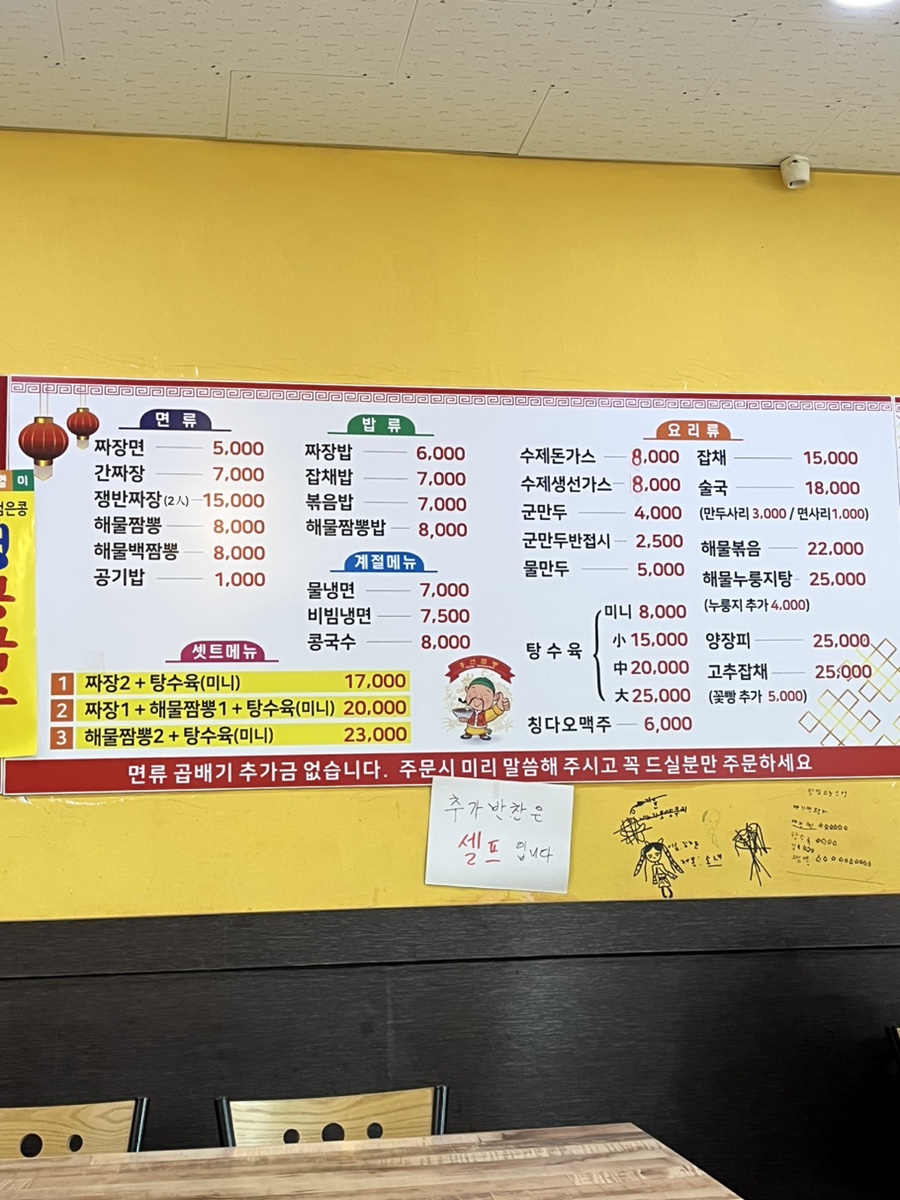 면 류
짜장면 5,000
간짜장 7,000
쟁반짜장(2人) 15,000
해물짬뽕 8,000
해물백짬뽕 8,000
공기밥 1,000
밥 류
짜장밥 6,000
잡채밥 7,000
볶음밥 7,000
해물짬뽕밥 8,000
계절메뉴
물냉면 7,000
비빔냉면 7,500
콩국수 8,000
셋트메뉴
1 짜장2 + 탕수육(미니) 17,000
2 짜장1 + 해물짬뽕1 + 탕수육(미니) 20,000
3 해물짬뽕2 + 탕수육(미니) 23,000
요 리 류
수제돈가스 8,000
수제생선가스 8,000
군만두 4,000
군만두반접시 2,500
물만두 5,000
탕 수 육
미니 8,000
小 15,000
中 20,000
大 25,000
칭다오맥주 6,000
잡채 15,000
술국 18,000
(만두사리 3,000 / 면사리1,000)
해물볶음 22,000
해물누룽지탕 25,000
(누룽지 추가 4,000)
양장피 25,000
고추잡채 25,000
(꽃빵 추가 5,000)
면류 곱배기 추가금 없습니다. 주문시 미리 말씀해 주시고 꼭 드실분만 주문하세요
추가반찬은
셀프 입니다